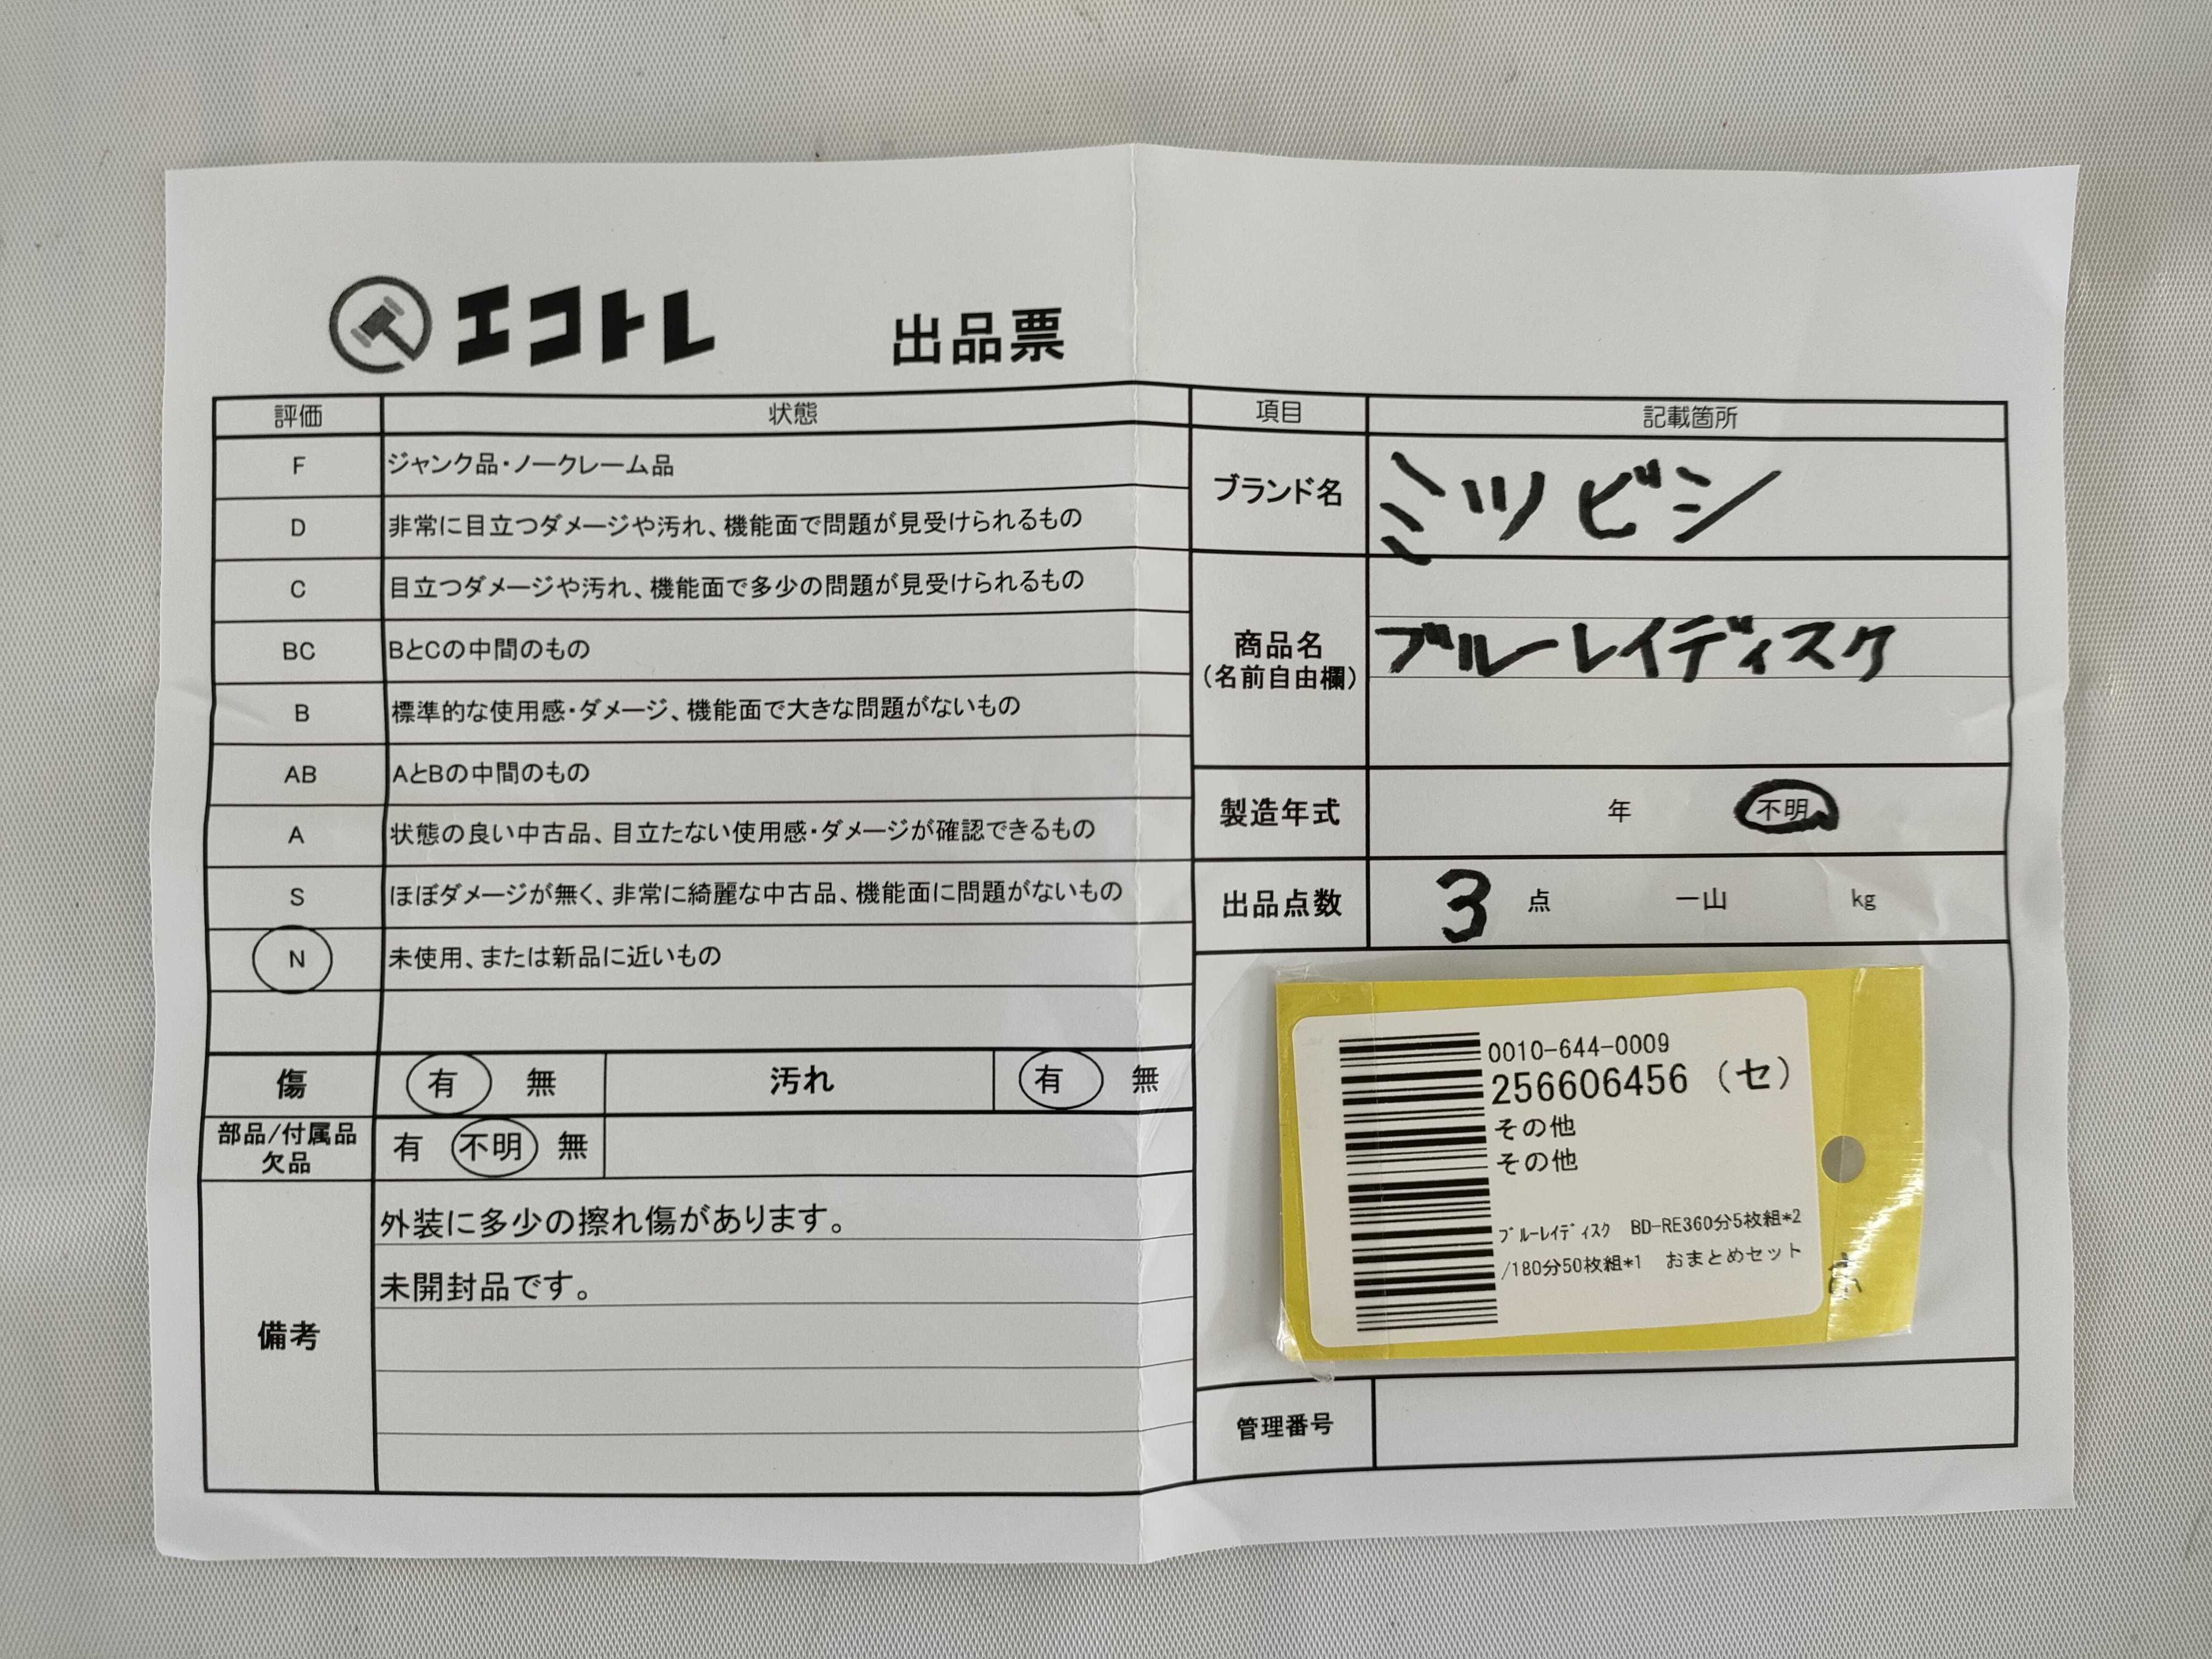 エコトレ 出品票
評価 状態
F ジャンク品・ノークレーム品
D 非常に目立つダメージや汚れ、機能面で問題が見受けられるもの
C 目立つダメージや汚れ、機能面で多少の問題が見受けられるもの
BC BとCの中間のもの
B 標準的な使用感・ダメージ、機能面で大きな問題がないもの
AB AとBの中間のもの
A 状態の良い中古品、目立たない使用感・ダメージが確認できるもの
S ほぼダメージが無く、非常に綺麗な中古品、機能面に問題がないもの
N 未使用、または新品に近いもの
傷 有 無 汚れ 有 無
部品/付属品
欠品
有 不明 無
備考
外装に多少の擦れ傷があります。
未開封品です。
項目 記載箇所
ブランド名 ミツビシ
商品名
(名前自由欄)
ブルーレイディスク
製造年式 年 不明
出品点数 3 点 一山 kg
0010-644-0009
256606456 (セ)
その他
その他
ﾌﾞﾙｰﾚｲﾃﾞｨｽｸ BD-RE360分5枚組*2
/180分50枚組*1 おまとめセット
管理番号